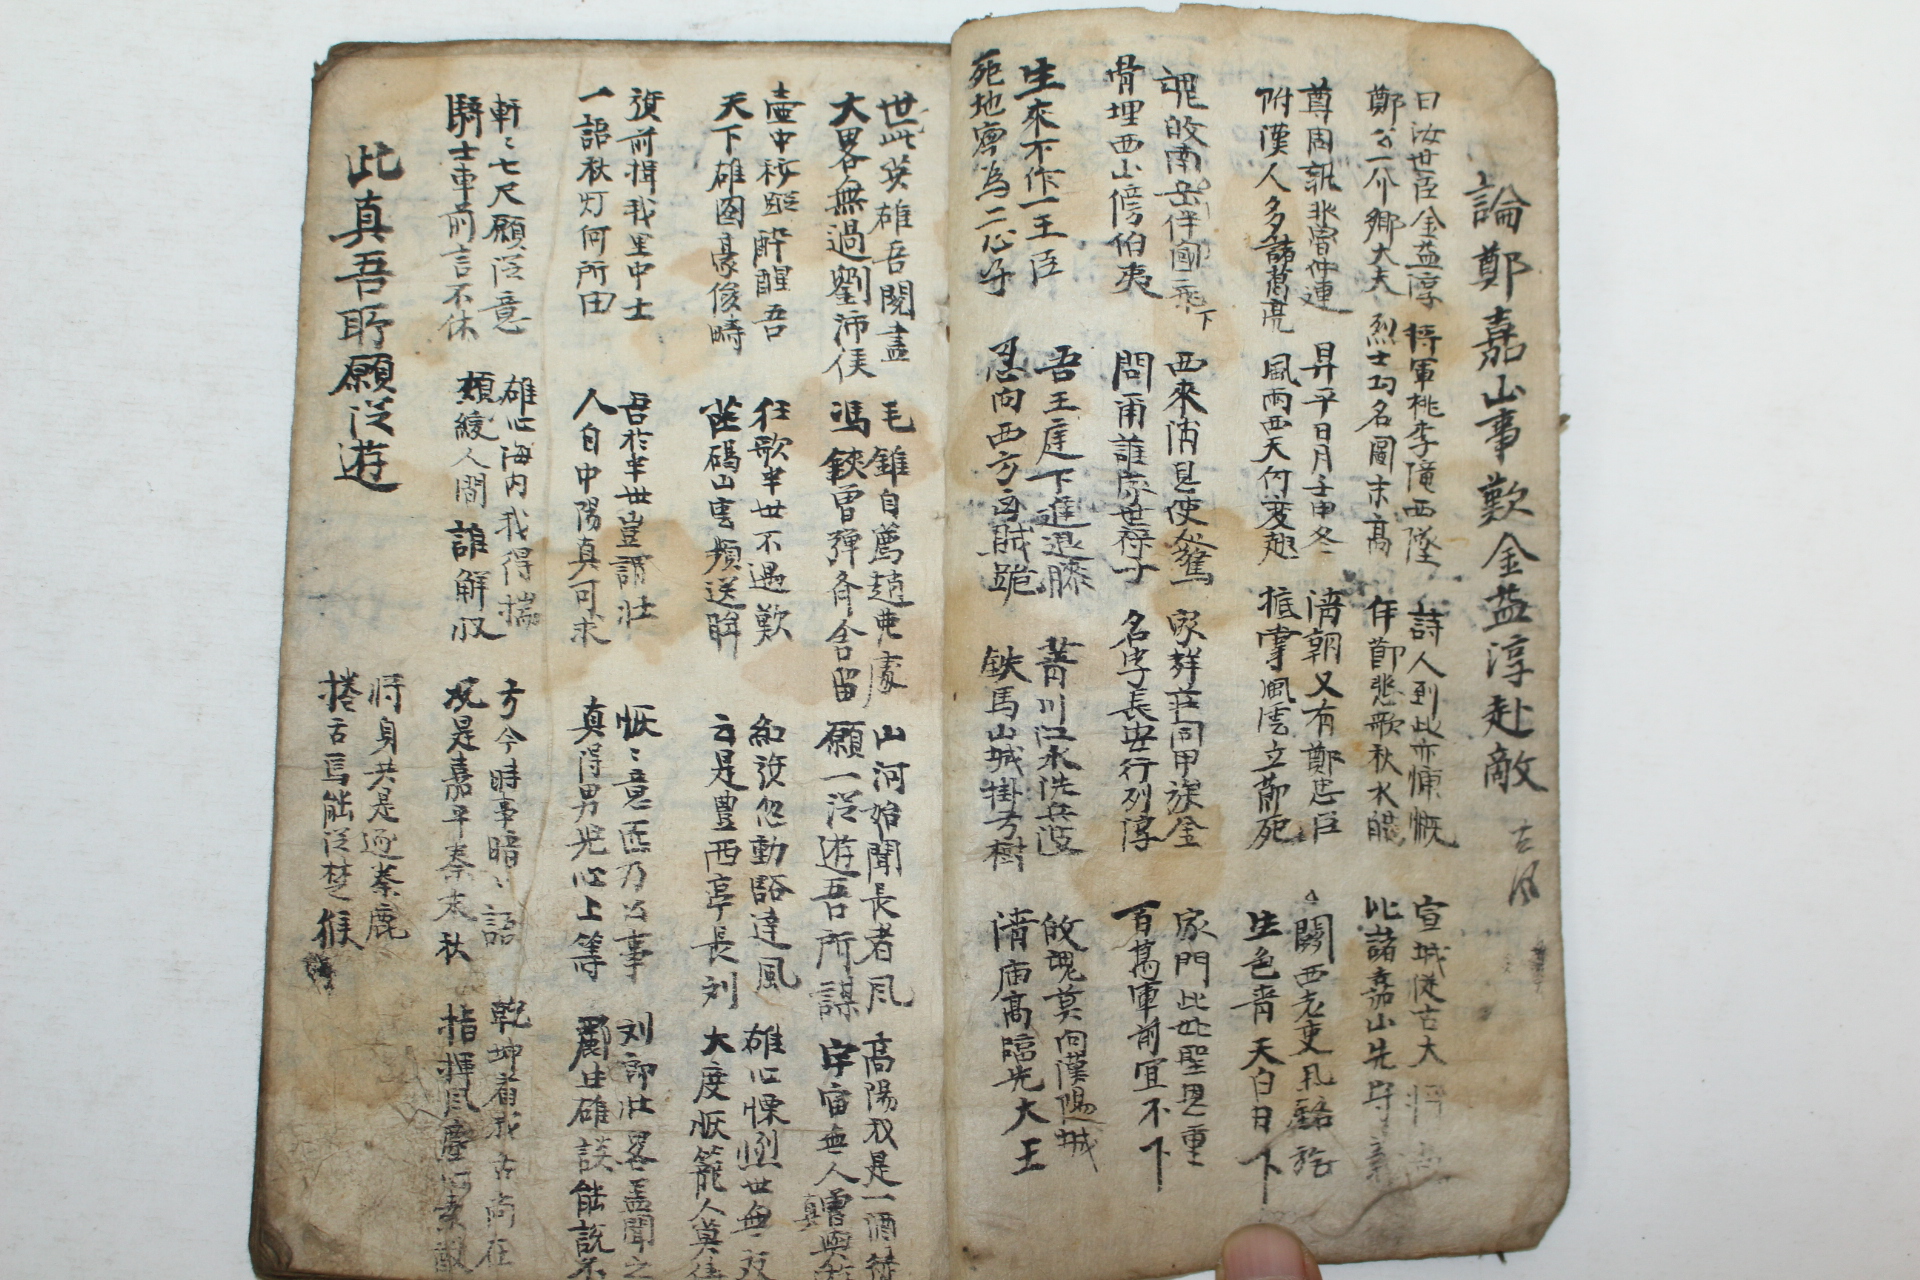 論鄭嘉山事歎金益淳赴敵 古風
曰汝世臣金益淳
鄭公一介鄉大夫
將軍桃李隴西墜
烈士功名圖末高
詩人到此亦慷慨
節悲歌秋水
宣城從古大將
比諸嘉山先守義
尊周孰非魯仲連
附漢人多諸葛亮
昇平日月壬申冬
風雨西天何変起
淸朝又有鄭忠臣
抵掌風雲立節死
關西老吏孔銘旌
生色青天白日下
魂皈南岳伴飛
骨埋西山傍伯夷
西來消息使人驚
問甫誰家世祿子
家莊同甲族金
名字長安行列淳
家門此世聖恩重
百萬軍前宜不下
生來不作一王臣
死地寧為二心子
吾王庭下進退膝
忍向西方賊跪
菁川江水洗兵波
鉄馬山城掛弓樹
皈魂莫向漢陽城
淸庙高臨先大王
世此英雄吾閱盡
大畧無過劉沛侯
毛錐自薦趙典處
馮鋏曾彈齊舍留
山河始聞長者風
願一從遊吾所謀
高陽我是一酒徒
宇宙無人曾與遊
真
壺中秘蹤酔醒吾
天下雄圖豪俊疇
狂歌半世不遇歎
芒碭山雲頻送眸
忽動豁達風
云是豊西亭長刘
雄心慄烈世無双
大度恢籠人莫
筵前揖我里中士
一語秋灯何所由
吾於半世豈謂壮
人自中陽真可求
恢〻意匹乃公事
真得男児心上等
刘郎壮畧盖聞之
酈廿雄談能說不
軒〻七尺願從意
騎士車前言不休
雄心海内我得揣
類綬人間誰解収
方今時事暗〻語
况是嘉平秦太秋
乾坤着我舌尚在
指揮風塵
此真吾所願從遊
將身共是逐秦鹿
捲舌焉能從楚猴